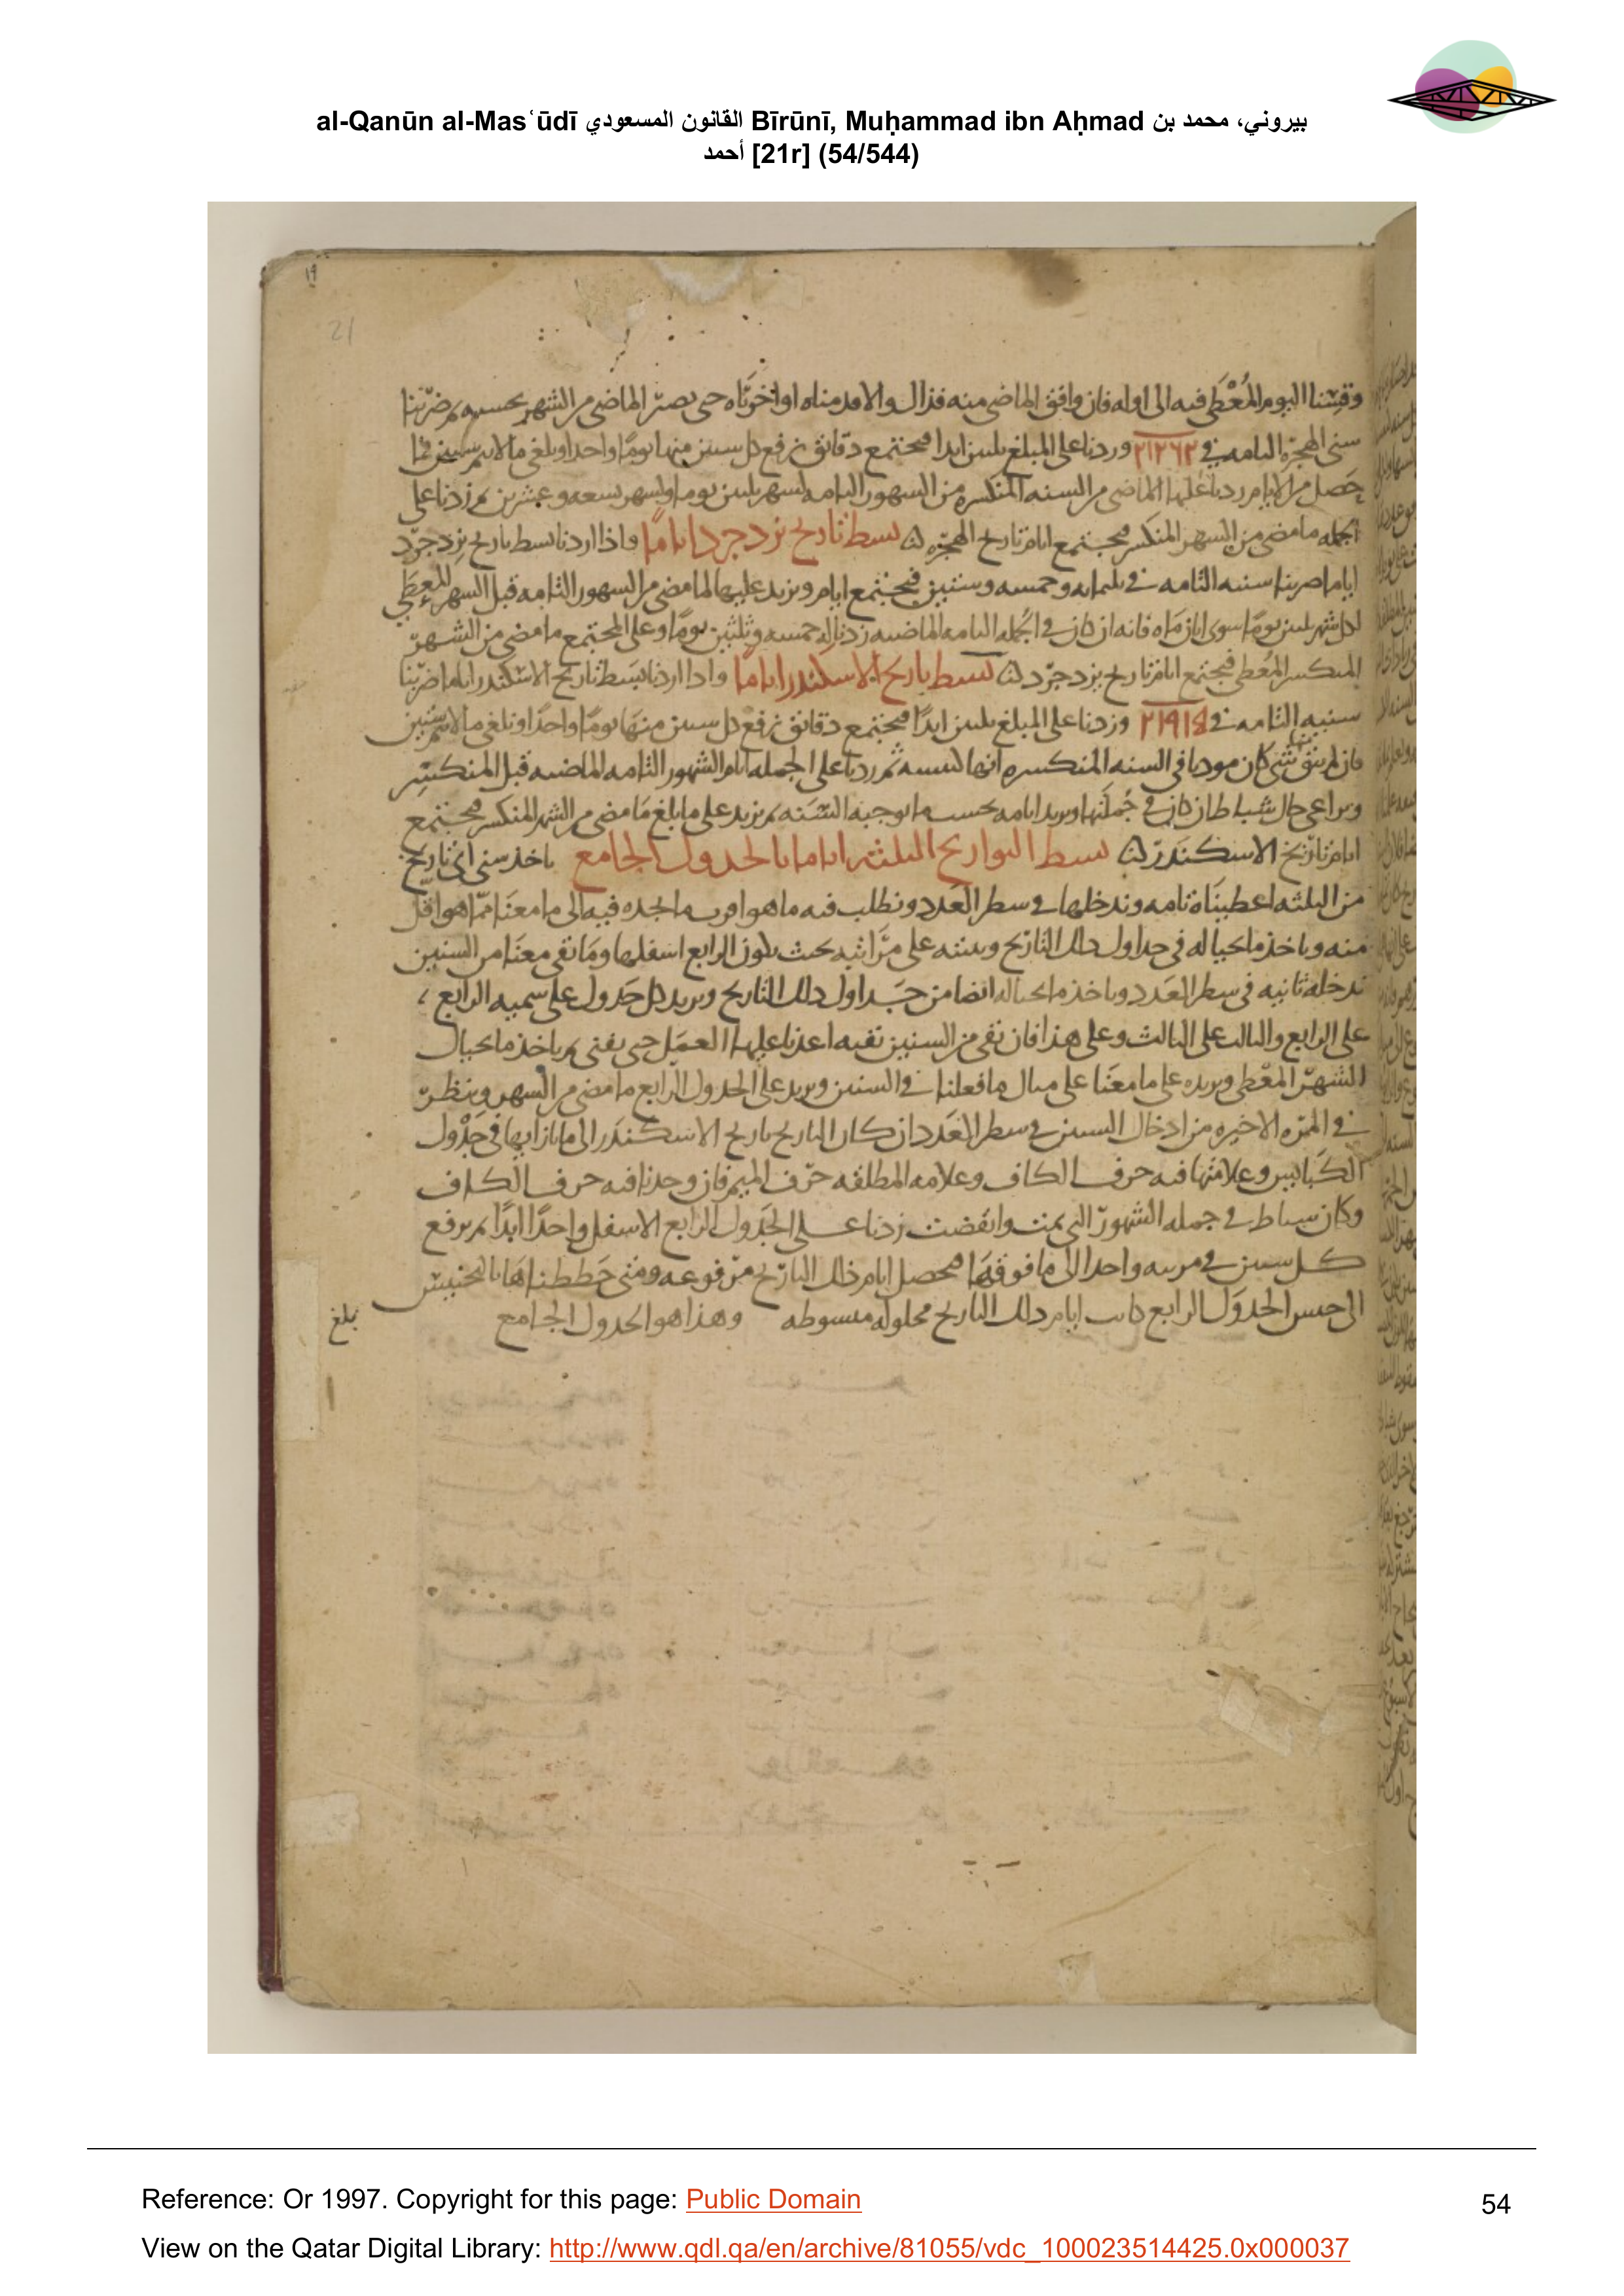 al-Qanūn al-Masʿūdī القانون المسعودي Bīrūnī, Muḥammad ibn Aḥmad بيروني، محمد بن
أحمد [21r] (54/544)
١٩
21
وقسنا اليوم المُعْطَى فيه الى اوله فان وافق الماضى منه فذاك والا قدمناه او اخرناه حتى يصير الماضى من الشهر بحسبه ثم ضربنا
سنى الهجرة التامه في ٢١٢٦٢ وزدنا على المبلغ ثلثين ابدا فيجتمع دقائق نرفع كل ستين منها يومًا واحدا ونلغى ما لا يتم ستين فما
حصل من الايام زدنا عليها الماضى من السنه المنكسره من الشهور التامه لشهر ثلثين يوما ولشهر تسعه وعشرين ثم زدنا على
الجمله ما مضى من الشهر المنكسر فيجتمع ايام تاريخ الهجرة بسط تاريخ يزدجرد اياما واذا اردنا بسط تاريخ يزدجرد
اياما ضربنا سنيه التامه في ثلثمايه وخمسه وستين فيجتمع ايام ونزيد عليها لما مضى من الشهور التامه قبل الشهر المعطى
لكل شهر ثلثين يومًا سوى ابان ماه فانه ان كان في الجمله التامه الماضيه زدنا له خمسه وثلثين يومًا وعلى المجتمع ما مضى من الشهر
المنكسر المعطى فيجتمع ايام تاريخ يزدجرد بسط تاريخ الاسكندر اياما واذا اردنا بسط تاريخ الاسكندر اياما ضربنا
سنيه التامه في ٢١٩١٥ وزدنا على المبلغ ثلثين ابدًا فيجتمع دقائق نرفع كل ستين منها يومًا واحدًا ونلغى ما لا يتم ستين
فان لم يبق شى كان موديا في السنه المنكسره انها كبيسه ثم زدنا على الجمله ايام الشهور التامه الماضيه قبل المنكسر
ونراعى حال شباط ان كان في جُملتها ونزيد ايامه بحسب ما يوجبه السنه ثم نزيد على ما بلغ ما مضى من الشهر المنكسر فيجتمع
ايام تاريخ الاسكندر بسط التواريخ الثلثه اياما بالجدول الجامع ناخذ سنى اى تاريخ
من الثلثه اعطيناه تامه وندخلها في سطر العدد ونطلب فيه ما هو اقرب ما نجده فيه الى ما معنا مما هو اقل
منه وناخذ ما بحياله في جداول ذلك التاريخ ونثبته على مراتبه بحيث يكون الرابع اسفلها وما بقى معنا من السنين
ندخله ثانيه في سطر العدد وناخذ ما بحياله ايضا من جداول ذلك التاريخ ونزيد كل جدول على سميه الرابع
على الرابع والثالث على الثالث وعلى هذا فان بقى من السنين بقيه اعدنا عليها العمل حتى يفنى ثم ناخذ ما بحيال
الشهر المعطى ونزيده على ما معنا على مثال ما فعلنا في السنين ونزيد على الجدول الرابع ما مضى من الشهر وننظر
في المرة الاخيره من ادخال السنين في سطر العدد ان كان التاريخ تاريخ الاسكندر الى ما بازايها في جدول
الكبايس وعلامتها فيه حرف الكاف وعلامه المطلقه حرف الميم فان وجدنا فيه حرف الكاف
وكان شباط في جمله الشهور التى تمت وانقضت زدنا على الجدول الرابع الاسفل واحدًا ابدًا ثم نرفع
كل ستين في مرتبه واحدا الى ما فوقها فيحصل ايام ذلك التاريخ مرفوعه ومتى حططناها بالتجنيس
الى جنس الجدول الرابع كانت ايام ذلك التاريخ محلوله مبسوطه وهذا هو الجدول الجامع
بلغ
Reference: Or 1997. Copyright for this page: Public Domain
54
View on the Qatar Digital Library: http://www.qdl.qa/en/archive/81055/vdc_100023514425.0x000037